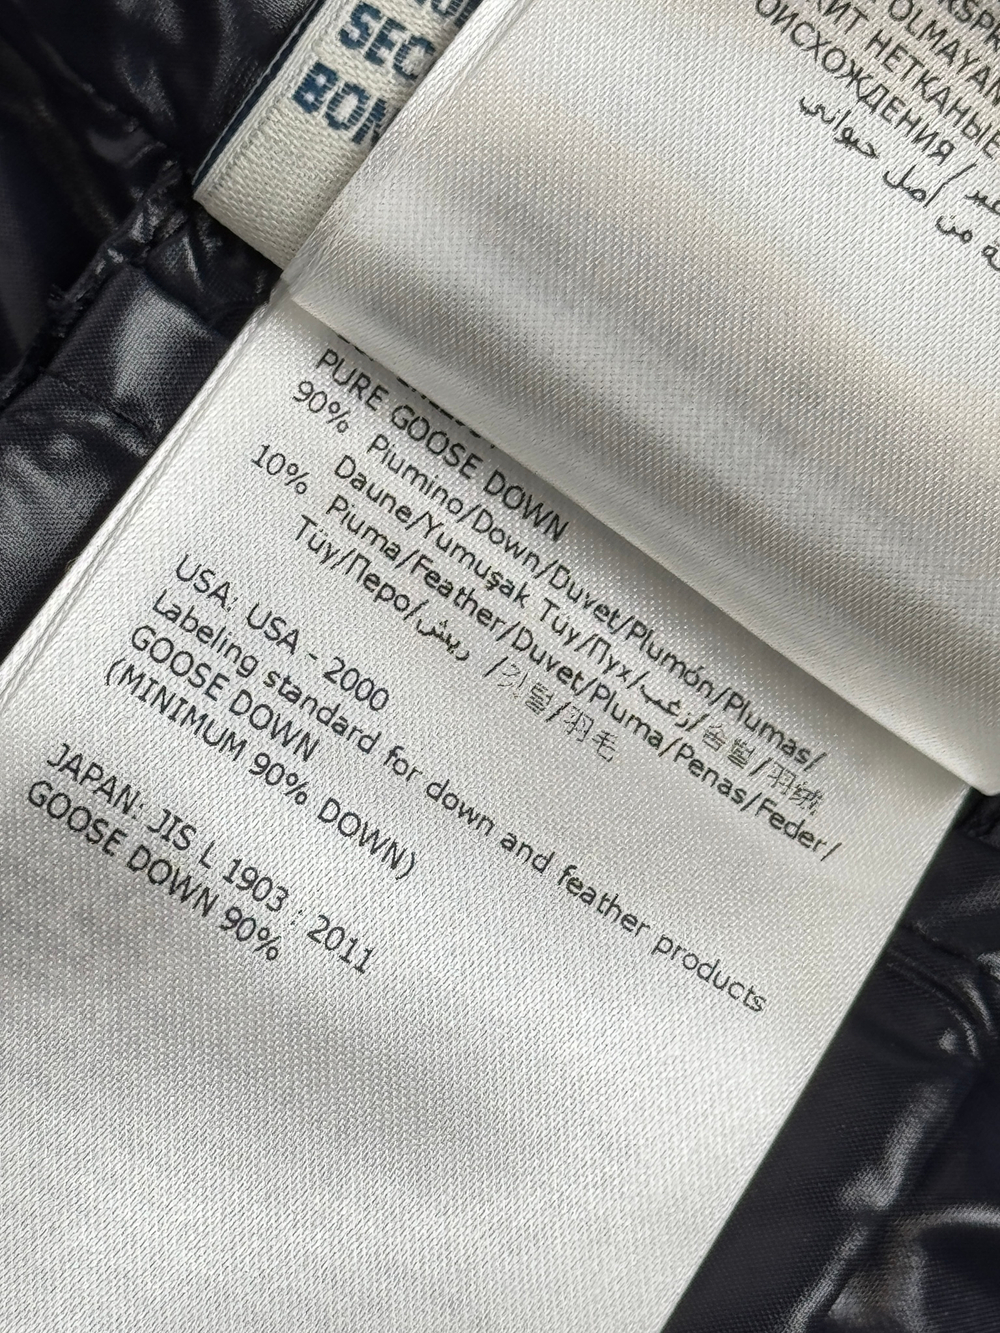 SEC
BON
OLMAYAN
НЕТКАНЫЕ
ОИСХОЖДЕНИЯ /
من أصل حيواني
PURE GOOSE DOWN
90% Piumino/Down/Duvet/Plumón/Plumas/
Daune/Yumuşak Tüy/Пух/زغب/솜털/羽绒
10% Piuma/Feather/Duvet/Pluma/Penas/Feder/
Tüy/Перо/ريش /깃털/羽毛
USA: USA - 2000
Labeling standard for down and feather products
GOOSE DOWN
(MINIMUM 90% DOWN)
JAPAN: JIS L 1903 : 2011
GOOSE DOWN 90%